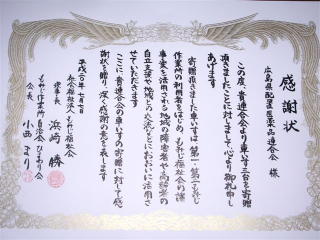 感謝状
広島県配置医薬品連合会 様
この度、貴連合会より車いす三台を寄贈
頂きましたことに対しまして、心より御礼申し
あげます
寄贈頂きました車いすは、第一・第二もみじ
作業所の利用者をはじめ、もみじ福祉会の諸
事業を活用される地域の障害者や高齢者の
自立支援や地域との交流などにおおいに活用さ
せていただきます
ここに、貴連合会の車いすの寄贈に対して感
謝状を贈り、深く感謝の意を表します
平成二〇年 七月七日
社会福祉法人 もみじ福祉会
理事長 浜崎 勝
もみじ作業所自治会ひまわり会
会長 小西 まり